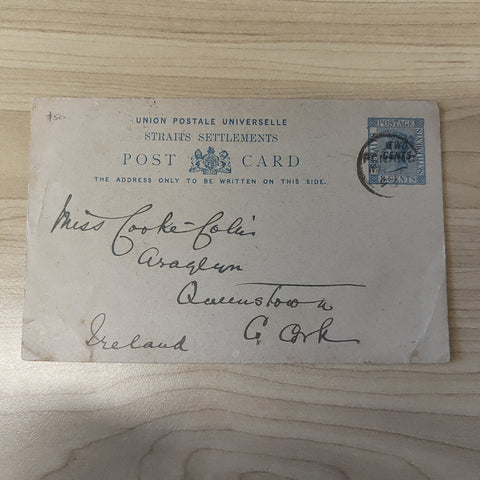 $50
UNION POSTALE UNIVERSELLE
STRAITS SETTLEMENTS
POST CARD
THE ADDRESS ONLY TO BE WRITTEN ON THIS SIDE.
POSTAGE
TWO
CENTS
CENTS
Miss Cooke-Collis
Araglyn
Queenstown
Co Cork
Ireland